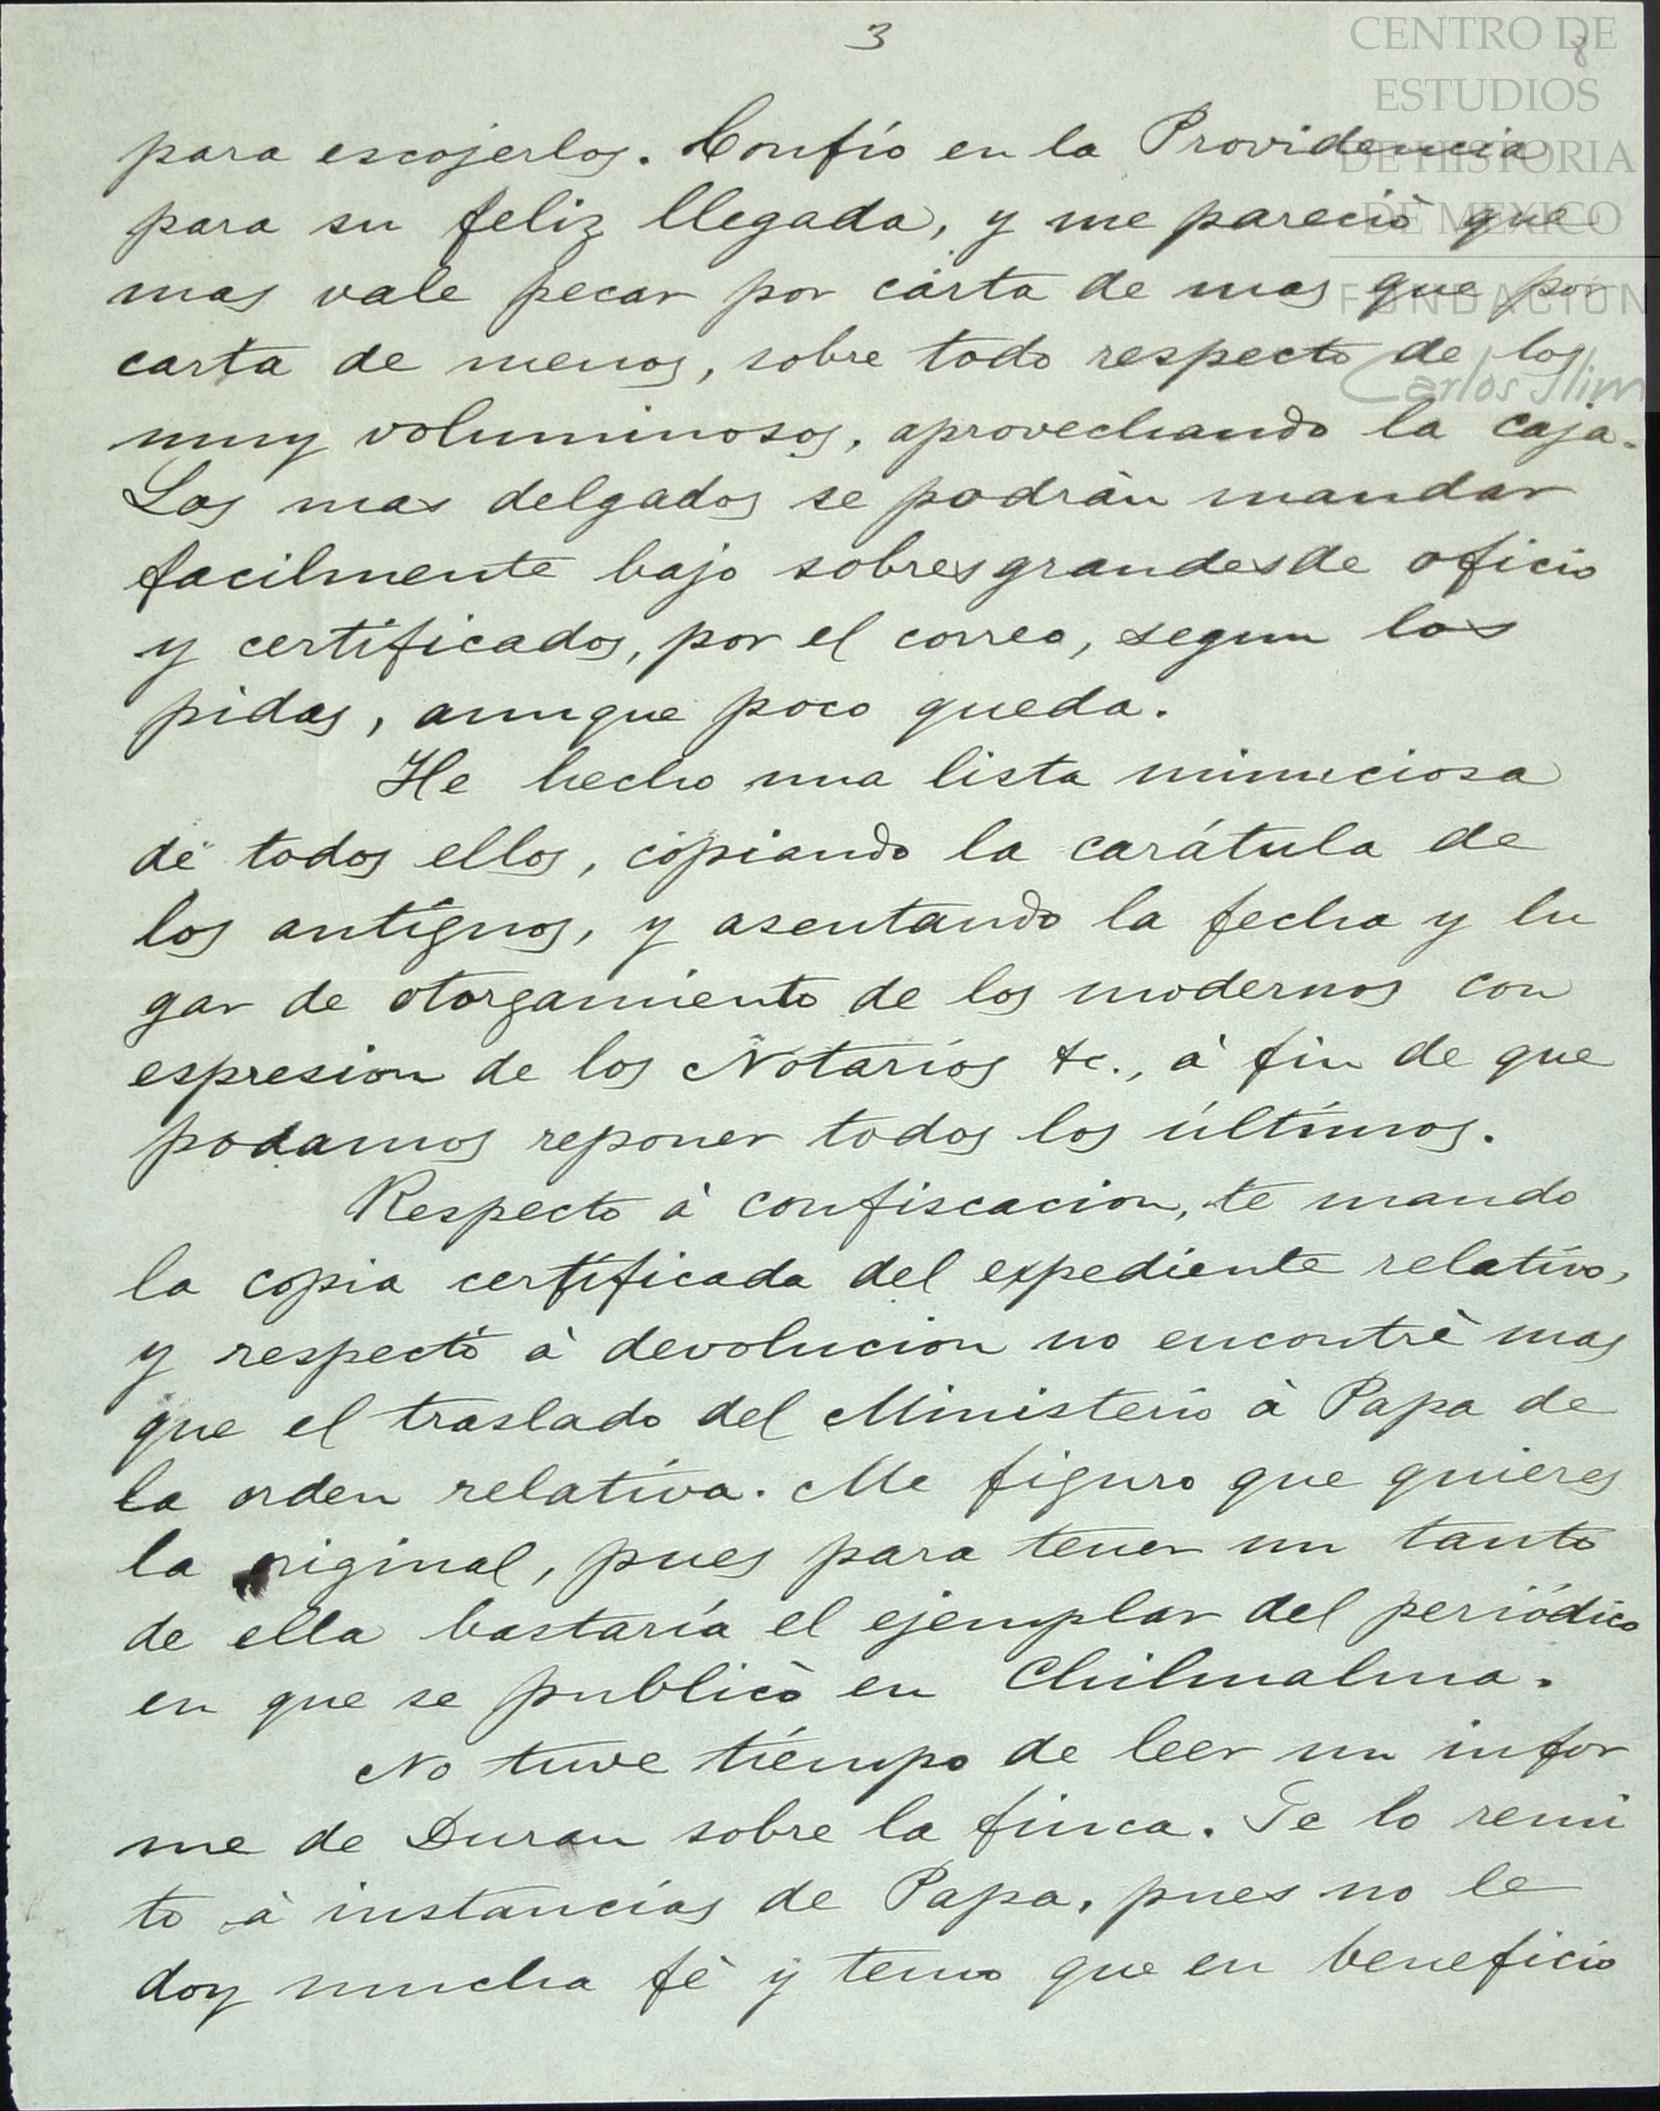 3
8
CENTRO DE
ESTUDIOS
DE HISTORIA
DE MEXICO
FUNDACION
Carlos Slim
para escojerlos. Confío en la Providencia
para su feliz llegada, y me pareciò que
mas vale pecar por carta de mas que por
carta de menos, sobre todo respecto de los
muy voluminosos, aprovechando la caja.
Los mas delgados se podràn mandar
facilmente bajo sobres grandes de oficio
y certificados, por el correo, segun los
pidas, aunque poco queda.
He hecho una lista minuciosa
de todos ellos, copiando la carátula de
los antiguos, y asentando la fecha y lu
gar de otorgamiento de los modernos con
espresion de los Notarios &c., à fin de que
podamos reponer todos los últimos.
Respecto à confiscacion, te mando
la copia certificada del expediente relativo,
y respecto à devolucion no encontrè mas
que el traslado del Ministerio à Papa de
la orden relativa. Me figuro que quieres
la original, pues para tener un tanto
de ella bastaría el ejemplar del periódico
en que se publicò en Chilmalma.
No tuve tiempo de leer un infor
me de Duran sobre la finca. Te lo remi
to à instancias de Papa, pues no le
doy mucha fè y temo que en beneficio